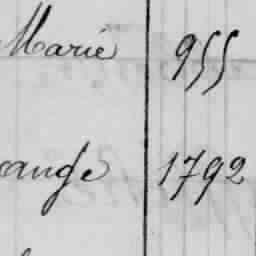 Marie 955
ange 1792